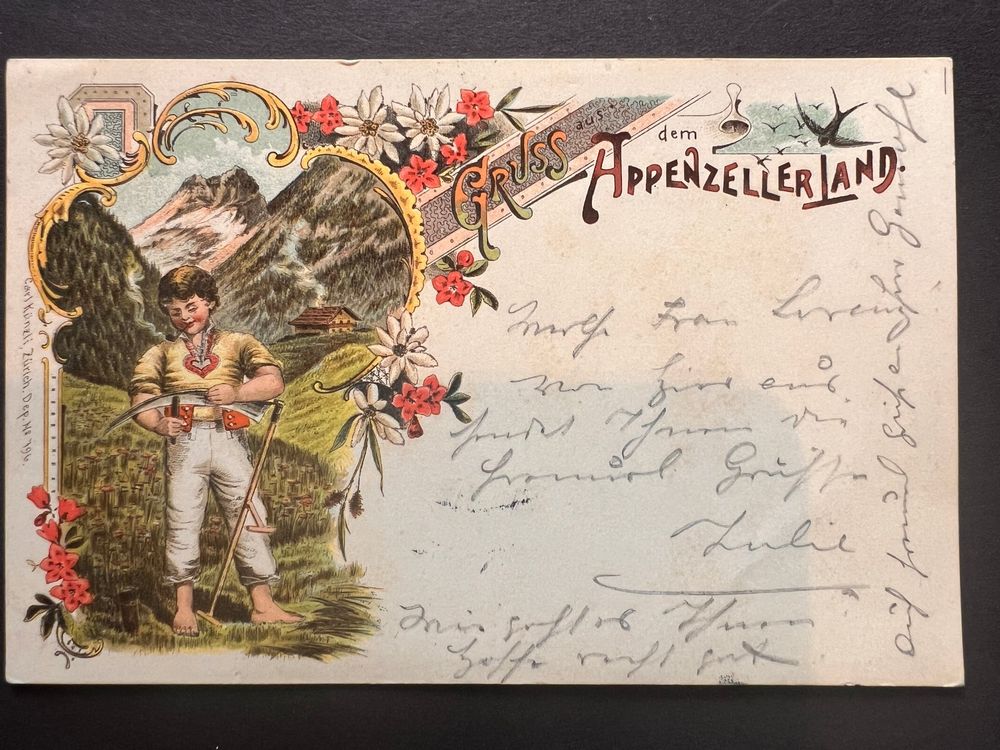 GRUSS aus dem APPENZELLERLAND.
Carl Künzli, Zürich. Dep. No 796
Frau
von hier aus
sendet Ihnen die
Grüsse
Julie
Wie geht es Ihnen
hoffe recht gut
Auch freundl Grüsse